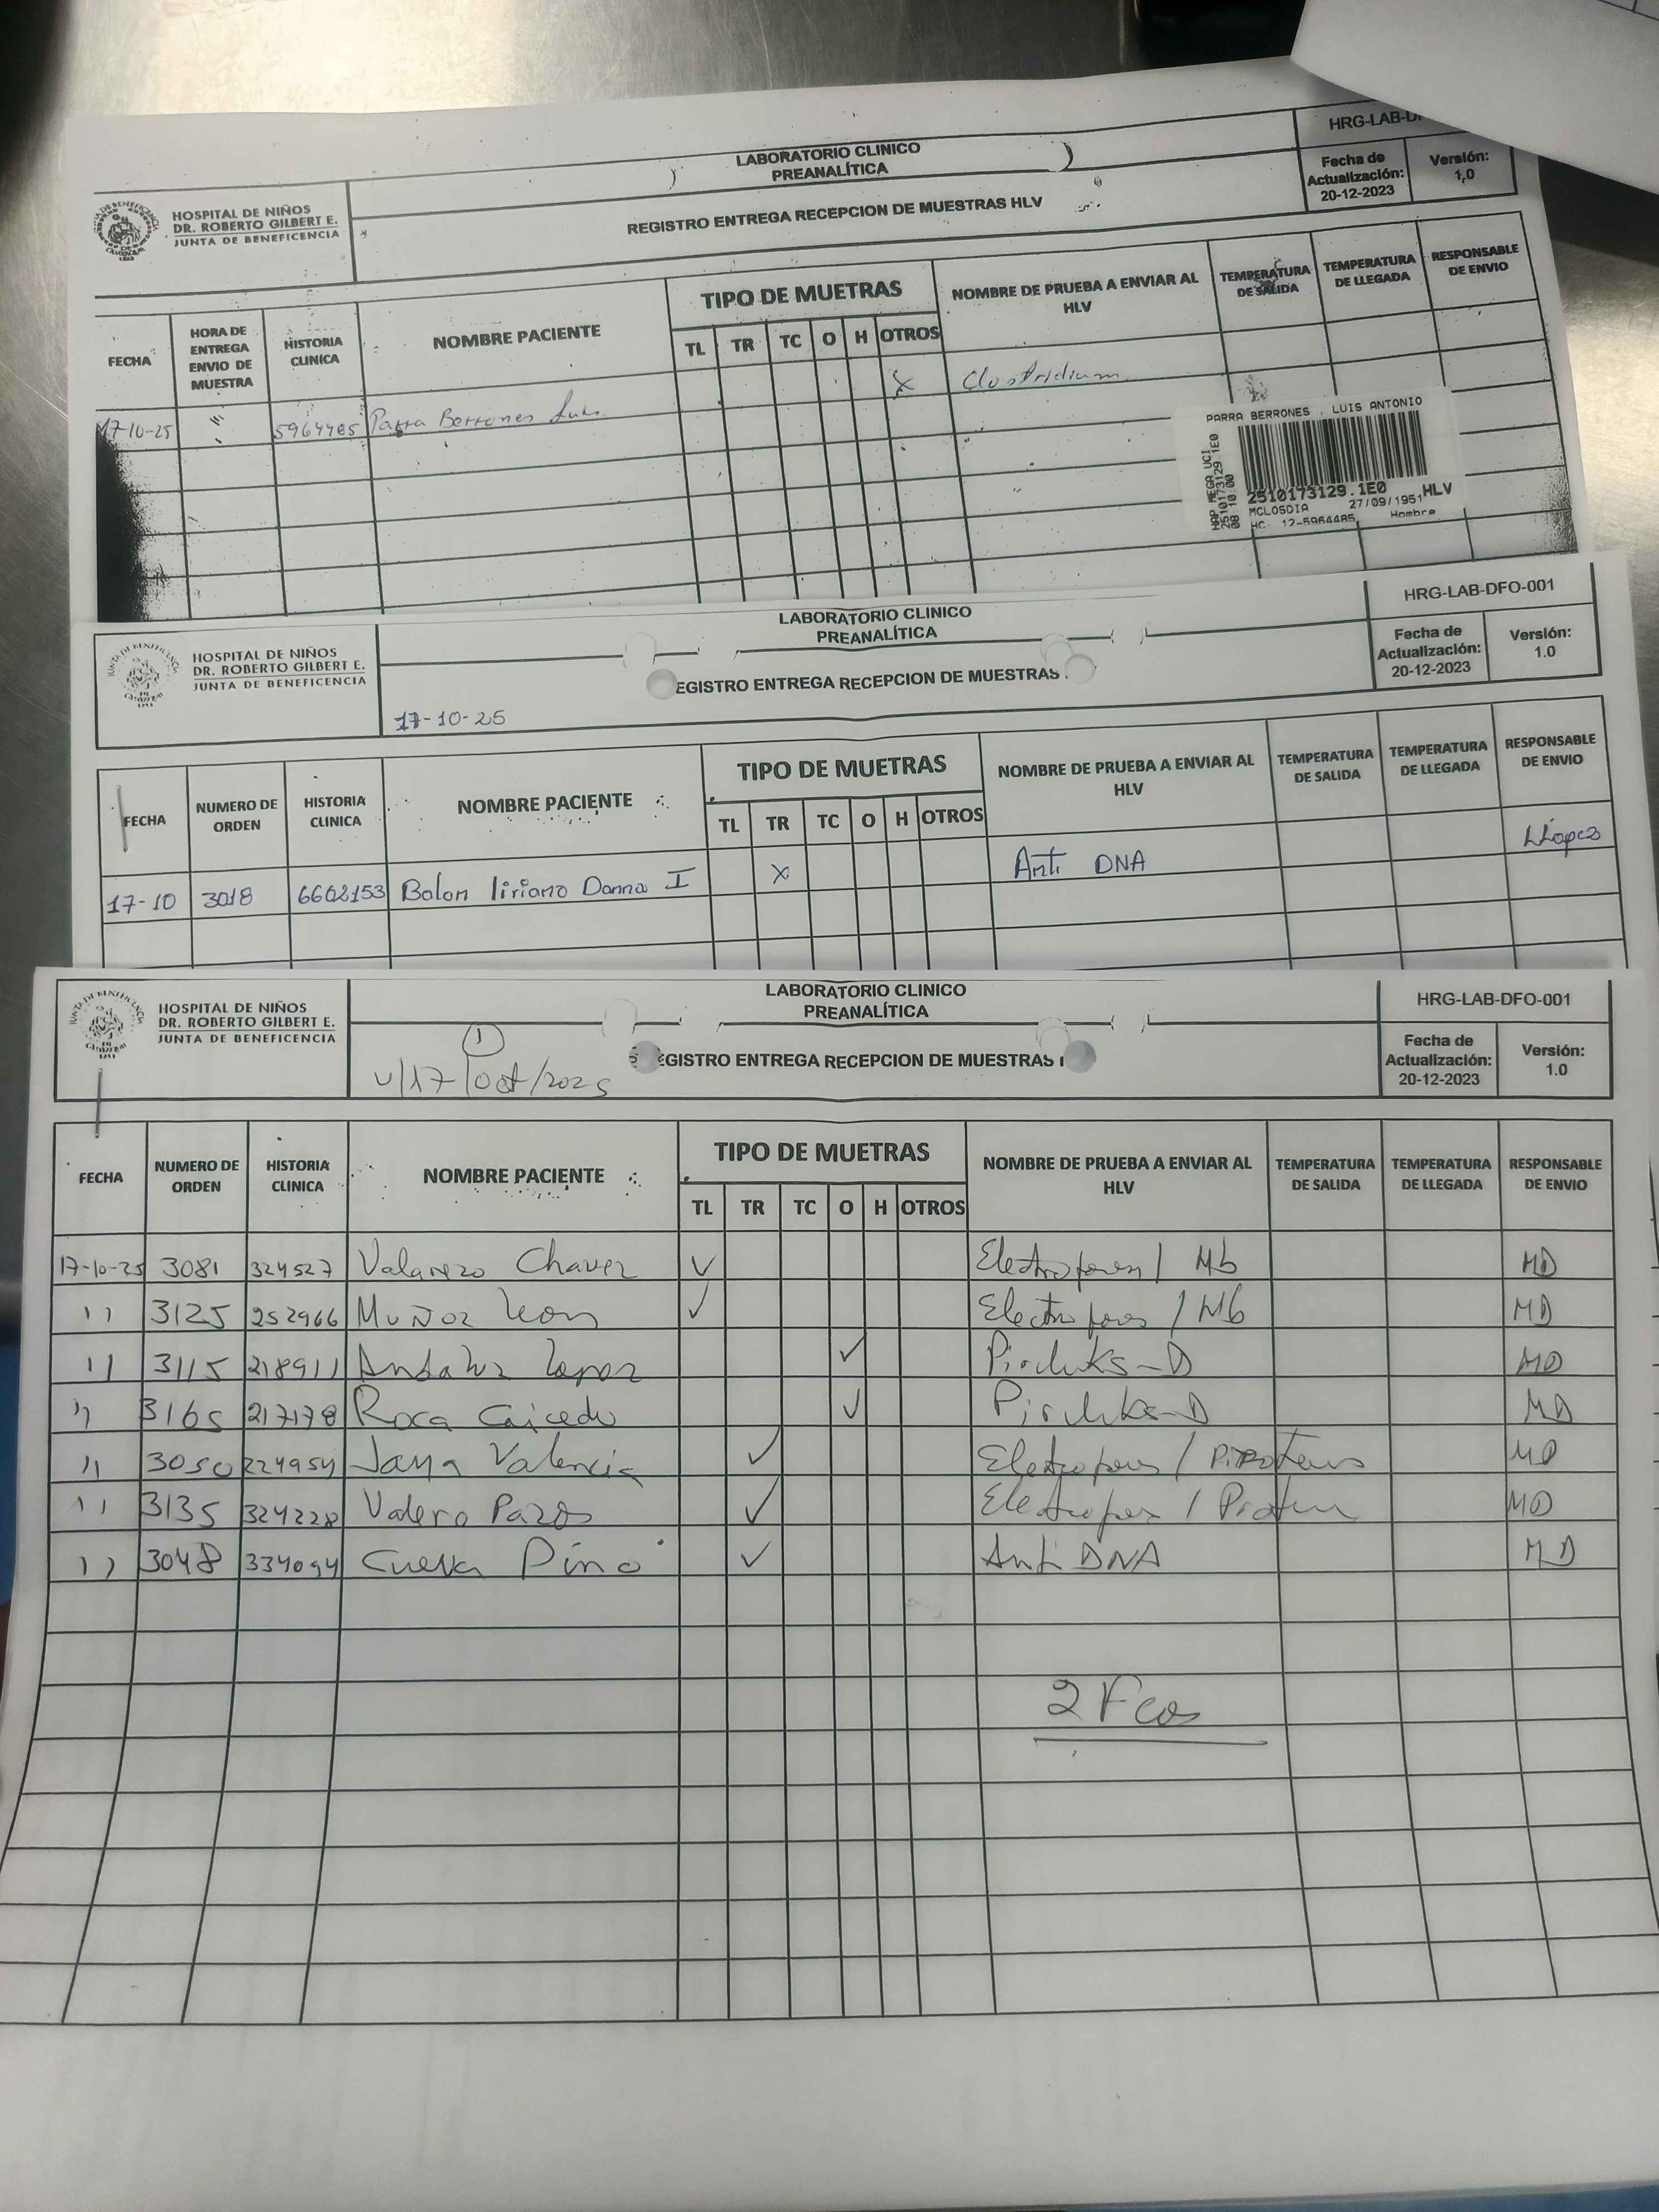 HRG-LAB-D
LABORATORIO CLINICO
PREANALÍTICA
Fecha de Actualización: 20-12-2023
Versión: 1,0
HOSPITAL DE NIÑOS
DR. ROBERTO GILBERT E.
JUNTA DE BENEFICENCIA
REGISTRO ENTREGA RECEPCION DE MUESTRAS HLV
FECHA HORA DE ENTREGA ENVIO DE MUESTRA HISTORIA CLINICA NOMBRE PACIENTE TIPO DE MUETRAS NOMBRE DE PRUEBA A ENVIAR AL HLV TEMPERATURA DE SALIDA TEMPERATURA DE LLEGADA RESPONSABLE DE ENVIO
TL TR TC O H OTROS
17-10-25 " 5964485 Parra Berrones Luis x Clostridium
PARRA BERRONES . LUIS ANTONIO
HAP MEGA UCI
2510173129 1E0
08:10:00
2510173129.1E0 HLV
MCLOSDIA 27/09/1951
HC. 12-5964485 Hombre
HRG-LAB-DFO-001
LABORATORIO CLINICO
PREANALÍTICA
Fecha de Actualización: 20-12-2023
Versión: 1.0
HOSPITAL DE NIÑOS
DR. ROBERTO GILBERT E.
JUNTA DE BENEFICENCIA
EGISTRO ENTREGA RECEPCION DE MUESTRAS
17-10-25
FECHA NUMERO DE ORDEN HISTORIA CLINICA NOMBRE PACIENTE TIPO DE MUETRAS NOMBRE DE PRUEBA A ENVIAR AL HLV TEMPERATURA DE SALIDA TEMPERATURA DE LLEGADA RESPONSABLE DE ENVIO
TL TR TC O H OTROS
17-10 3018 6602153 Bolon liriano Danna I x Anti DNA LLopez
HRG-LAB-DFO-001
LABORATORIO CLINICO
PREANALÍTICA
Fecha de Actualización: 20-12-2023
Versión: 1.0
HOSPITAL DE NIÑOS
DR. ROBERTO GILBERT E.
JUNTA DE BENEFICENCIA
1
EGISTRO ENTREGA RECEPCION DE MUESTRAS
V/17/Oct/2025
FECHA NUMERO DE ORDEN HISTORIA CLINICA NOMBRE PACIENTE TIPO DE MUETRAS NOMBRE DE PRUEBA A ENVIAR AL HLV TEMPERATURA DE SALIDA TEMPERATURA DE LLEGADA RESPONSABLE DE ENVIO
TL TR TC O H OTROS
17-10-25 3081 324527 Valarezo Chavez ✓ / Hb MD
11 3125 252966 Muñoz Leon ✓ / Hb MD
11 3115 218911 Andaluz Lopez ✓ MD
11 3165 217178 Roca Caicedo ✓ MD
11 3050 224954 Jaya Valencia ✓ MD
11 3135 324228 Valero Pazos ✓ MD
11 3048 334094 Cueva Pino ✓ Anti DNA MD
2 Fcos